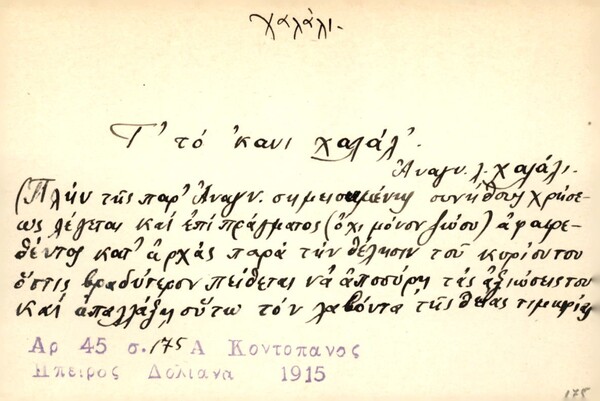 χαλάλι.
Τ' τό 'κανι χαλάλ'.
Ἀναγν. λ. χαλάλι.
(Πλήν τῆς παρ' Ἀναγν. σημειουμένης συνήθους χρήσε-
ως λέγεται καί ἐπί πράγματος (ὄχι μόνον ζώου) ἀφαιρε-
θέντος κατ' ἀρχάς παρά τήν θέλησιν τοῦ κυρίου του
ὅστις βραδύτερον πείθεται νά ἀποσύρη τάς ἀξιώσεις του
καί ἀπαλλάξη οὕτω τόν λαβόντα τῆς θείας τιμωρίας
Αρ 45 σ. 175 Α Κοντοπανος
Ηπειρος Δολιανα 1915
175